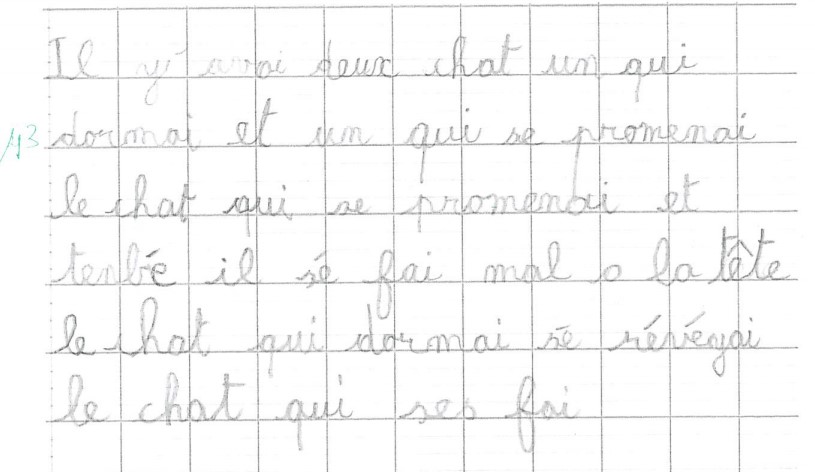 Il y avai deux chat un qui
dormai et un qui se promenai
le chat qui se promenai et
tenbé il sé fai mal a la tête
le chat qui dormai sé révéyai
le chat qui ses fai